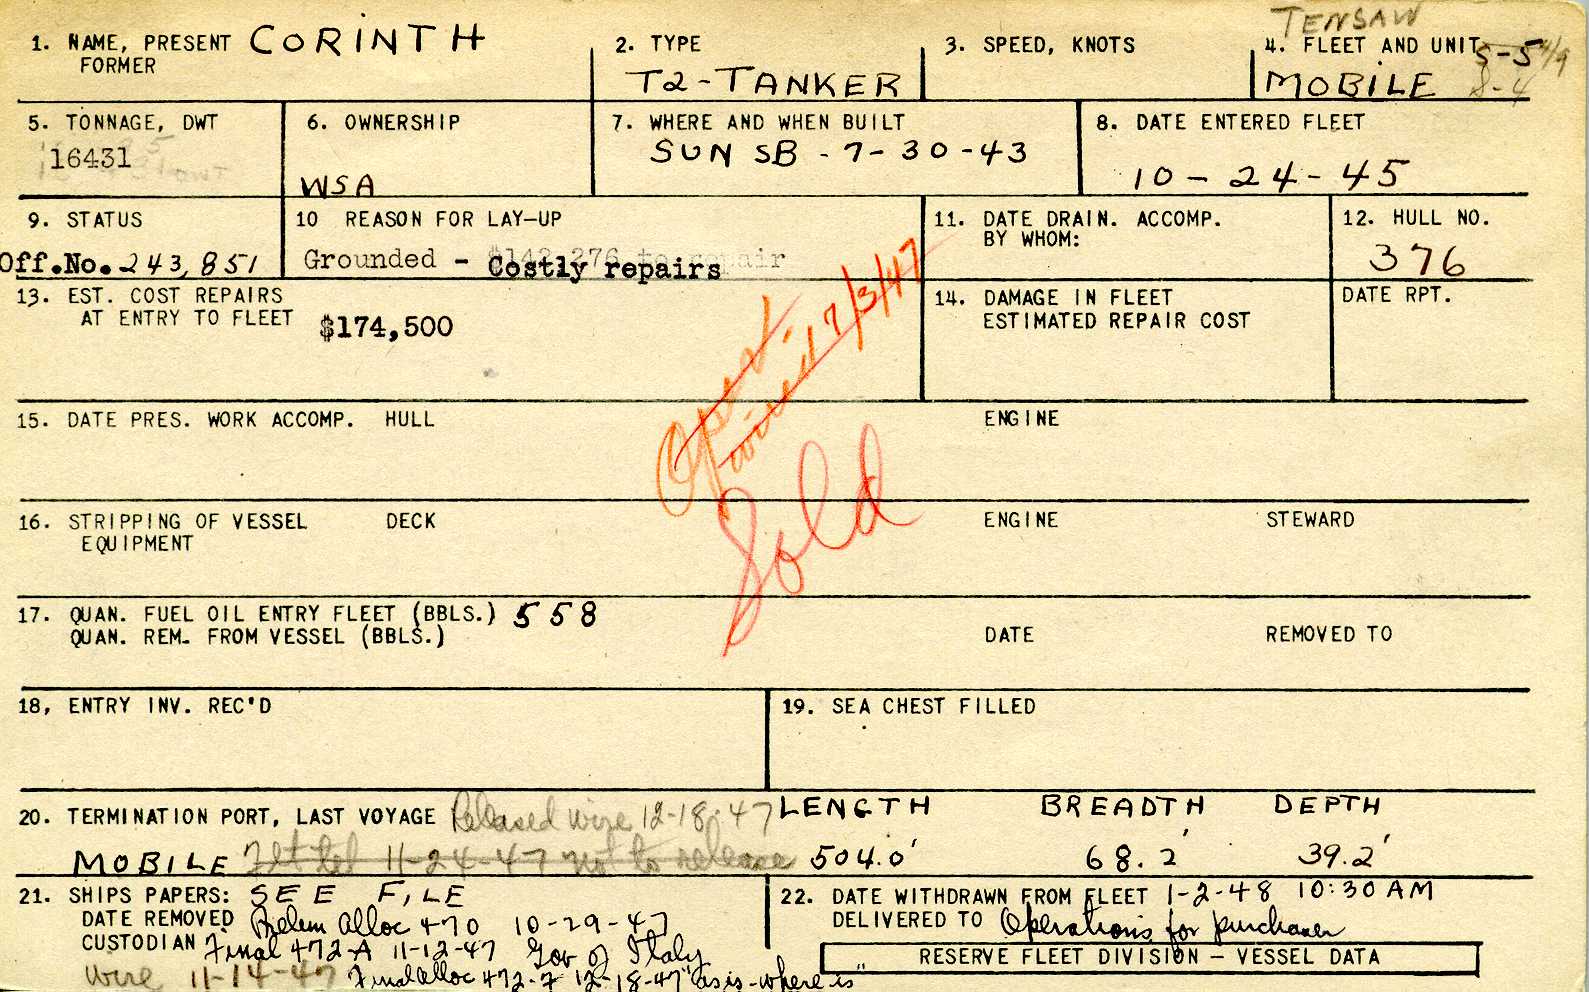 TENSAW
1. NAME, PRESENT CORINTH
FORMER
2. TYPE
T2-TANKER
3. SPEED, KNOTS
4. FLEET AND UNIT S-5 4/9
MOBILE S-4
5. TONNAGE, DWT
16431
6. OWNERSHIP
WSA
7. WHERE AND WHEN BUILT
SUN SB - 7-30-43
8. DATE ENTERED FLEET
10-24-45
9. STATUS
Off.No. 243,851
10 REASON FOR LAY-UP
Grounded - $142,276 to repair
Costly repairs
11. DATE DRAIN. ACCOMP.
BY WHOM:
12. HULL NO.
376
13. EST. COST REPAIRS
AT ENTRY TO FLEET $174,500
14. DAMAGE IN FLEET
ESTIMATED REPAIR COST
DATE RPT.
wire 7/3/47
Sold
15. DATE PRES. WORK ACCOMP. HULL ENGINE
16. STRIPPING OF VESSEL DECK ENGINE STEWARD
EQUIPMENT
17. QUAN. FUEL OIL ENTRY FLEET (BBLS.) 558
QUAN. REM. FROM VESSEL (BBLS.) DATE REMOVED TO
18, ENTRY INV. REC'D
19. SEA CHEST FILLED
20. TERMINATION PORT, LAST VOYAGE Released wire 12-18-47
MOBILE 11-24-47 not to release
LENGTH BREADTH DEPTH
504.0' 68.2' 39.2'
21. SHIPS PAPERS: SEE FILE
DATE REMOVED Prelim Alloc 470 10-29-47
CUSTODIAN Final 472-A 11-12-47 Gov of Italy
wire 11-14-47 Final alloc 472-F 12-18-47 "as is-where is"
22. DATE WITHDRAWN FROM FLEET 1-2-48 10:30 AM
DELIVERED TO Operations for purchaser
RESERVE FLEET DIVISION - VESSEL DATA